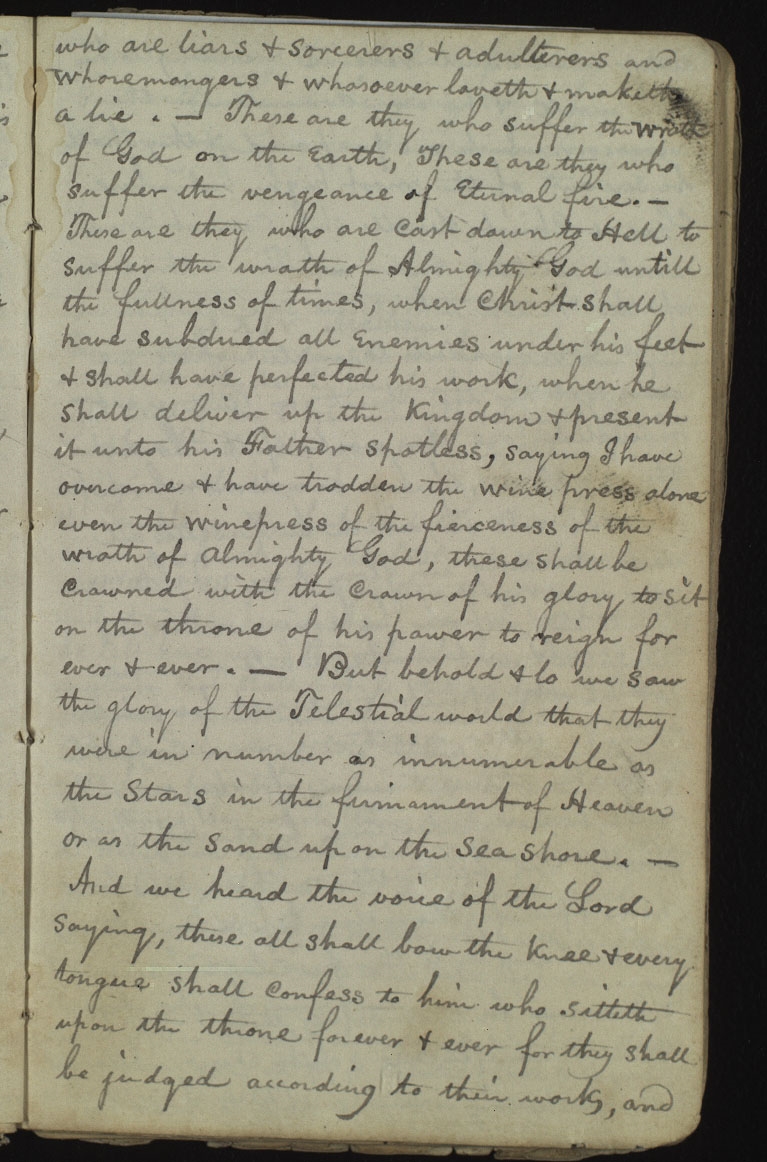 who are liars & sorcerers & adulterers and
whoremongers & whosoever loveth & maketh
a lie . — These are they who suffer the wrath
of God on the Earth, These are they who
suffer the vengeance of Eternal fire. —
These are they who are Cast down to Hell to
suffer the wrath of Almighty God untill
the fullness of times, when Christ shall
have subdued all Enemies under his feet
& shall have perfected his work, when he
shall deliver up the Kingdom & present
it unto his Father spotless, saying I have
overcome & have trodden the wine press alone
even the winepress of the fierceness of the
wrath of Almighty God, these shall be
Crowned with the Crown of his glory to sit
on the throne of his power to reign for
ever & ever. — But behold & lo we saw
the glory of the Telestial world that they
were in number as innumerable as
the Stars in the firmament of Heaven
or as the Sand upon the Sea Shore. —
And we heard the voice of the Lord
Saying, these all shall bow the Knee & every
tongue shall Confess to him who sitteth
upon the throne forever & ever for they shall
be judged according to their works, and